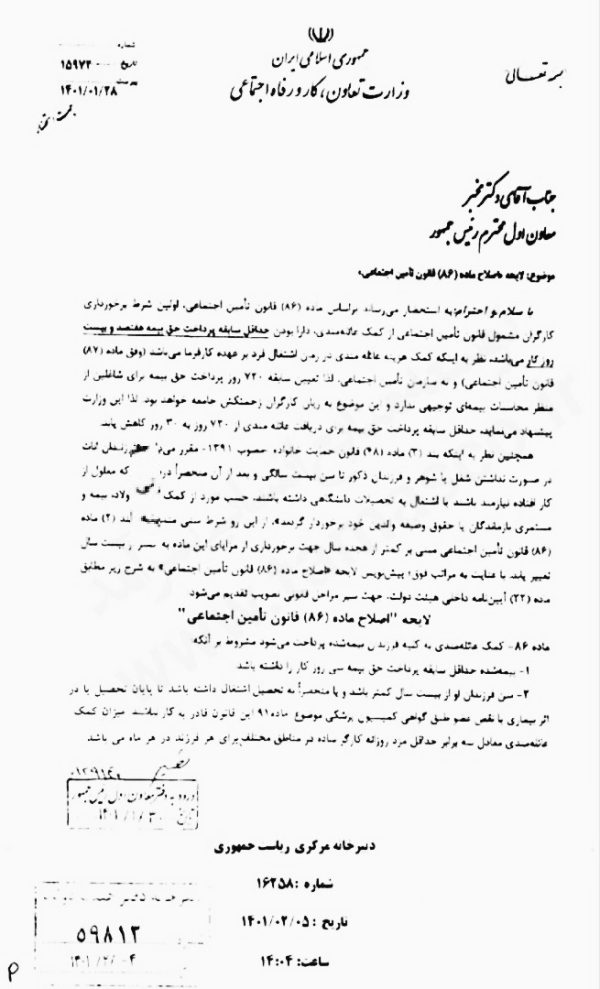 بسمه تعالی
جمهوری اسلامی ایران
وزارت تعاون، کار و رفاه اجتماعی
شماره
۱۵۹۷۲۰
تاریخ
۱۴۰۱/۰۱/۲۸
جناب آقای دکتر مخبر
معاون اول محترم رئیس جمهور
موضوع: لایحه «اصلاح ماده (۸۶) قانون تأمین اجتماعی»
با سلام و احترام؛ به استحضار می‌رساند براساس ماده (۸۶) قانون تأمین اجتماعی، اولین شرط برخورداری
کارگران مشمول قانون تأمین اجتماعی از کمک عائله‌مندی، دارا بودن حداقل سابقه پرداخت حق بیمه هفتصد و بیست
روز کار می‌باشد، نظر به اینکه کمک هزینه عائله مندی در زمان اشتغال فرد بر عهده کارفرما می‌باشد (وفق ماده (۸۷)
قانون تأمین اجتماعی) و نه سازمان تأمین اجتماعی، لذا تعیین سابقه ۷۲۰ روز پرداخت حق بیمه برای شاغلین از
منظر محاسبات بیمه‌ای توجیهی ندارد و این موضوع به زیان کارگران زحمتکش جامعه خواهد بود. لذا این وزارت
پیشنهاد می‌نماید، حداقل سابقه پرداخت حق بیمه برای دریافت عائله مندی از ۷۲۰ روز به ۳۰ روز کاهش یابد.
همچنین نظر به اینکه بند (۳) ماده (۴۸) قانون حمایت خانواده مصوب ۱۳۹۱- مقرر فرزندان اناث
در صورت نداشتن شغل یا شوهر و فرزندان ذکور تا سن بیست سالگی و بعد از آن منحصراً که معلول از
کار افتاده نیازمند باشند یا اشتغال به تحصیلات دانشگاهی داشته باشند، حسب مورد از کمک اولاد، بیمه و
مستمری بازماندگان یا حقوق وظیفه والدین خود برخوردار گردند». از این رو شرط سنی بند (۲) ماده
(۸۶) قانون تأمین اجتماعی مبنی بر کمتر از هجده سال جهت برخورداری از مزایای این ماده به بیست سال
تغییر یابد. با عنایت به مراتب فوق؛ پیش‌نویس لایحه «اصلاح ماده (۸۶) قانون تأمین اجتماعی» به شرح زیر مطابق
ماده (۲۲) آیین‌نامه داخلی هیئت دولت، جهت سیر مراحل قانونی تصویب تقدیم می‌شود.
لایحه "اصلاح ماده (۸۶) قانون تأمین اجتماعی"
ماده ۸۶- کمک عائله‌مندی به کلیه فرزندان بیمه‌شده پرداخت می‌شود مشروط بر آنکه:
۱- بیمه‌شده حداقل سابقه پرداخت حق بیمه سی روز کار را داشته باشد.
۲- سن فرزندان او از بیست سال کمتر باشد و یا منحصراً به تحصیل اشتغال داشته باشد تا پایان تحصیل یا در
اثر بیماری یا نقص عضو طبق گواهی کمیسیون پزشکی موضوع ماده ۹۱ این قانون قادر به کار نباشند. میزان کمک
عائله‌مندی معادل سه برابر حداقل مزد روزانه کارگر ساده در مناطق مختلف برای هر فرزند در هر ماه می باشد.
ورود به دفتر معاون اول رئیس جمهور
تاریخ ۱۴۰۱/۱/۳۰
دبیرخانه مرکزی ریاست جمهوری
شماره : ۱۶۲۵۸
تاریخ : ۱۴۰۱/۰۲/۰۵
ساعت: ۱۴:۰۴
۵۹۸۱۳